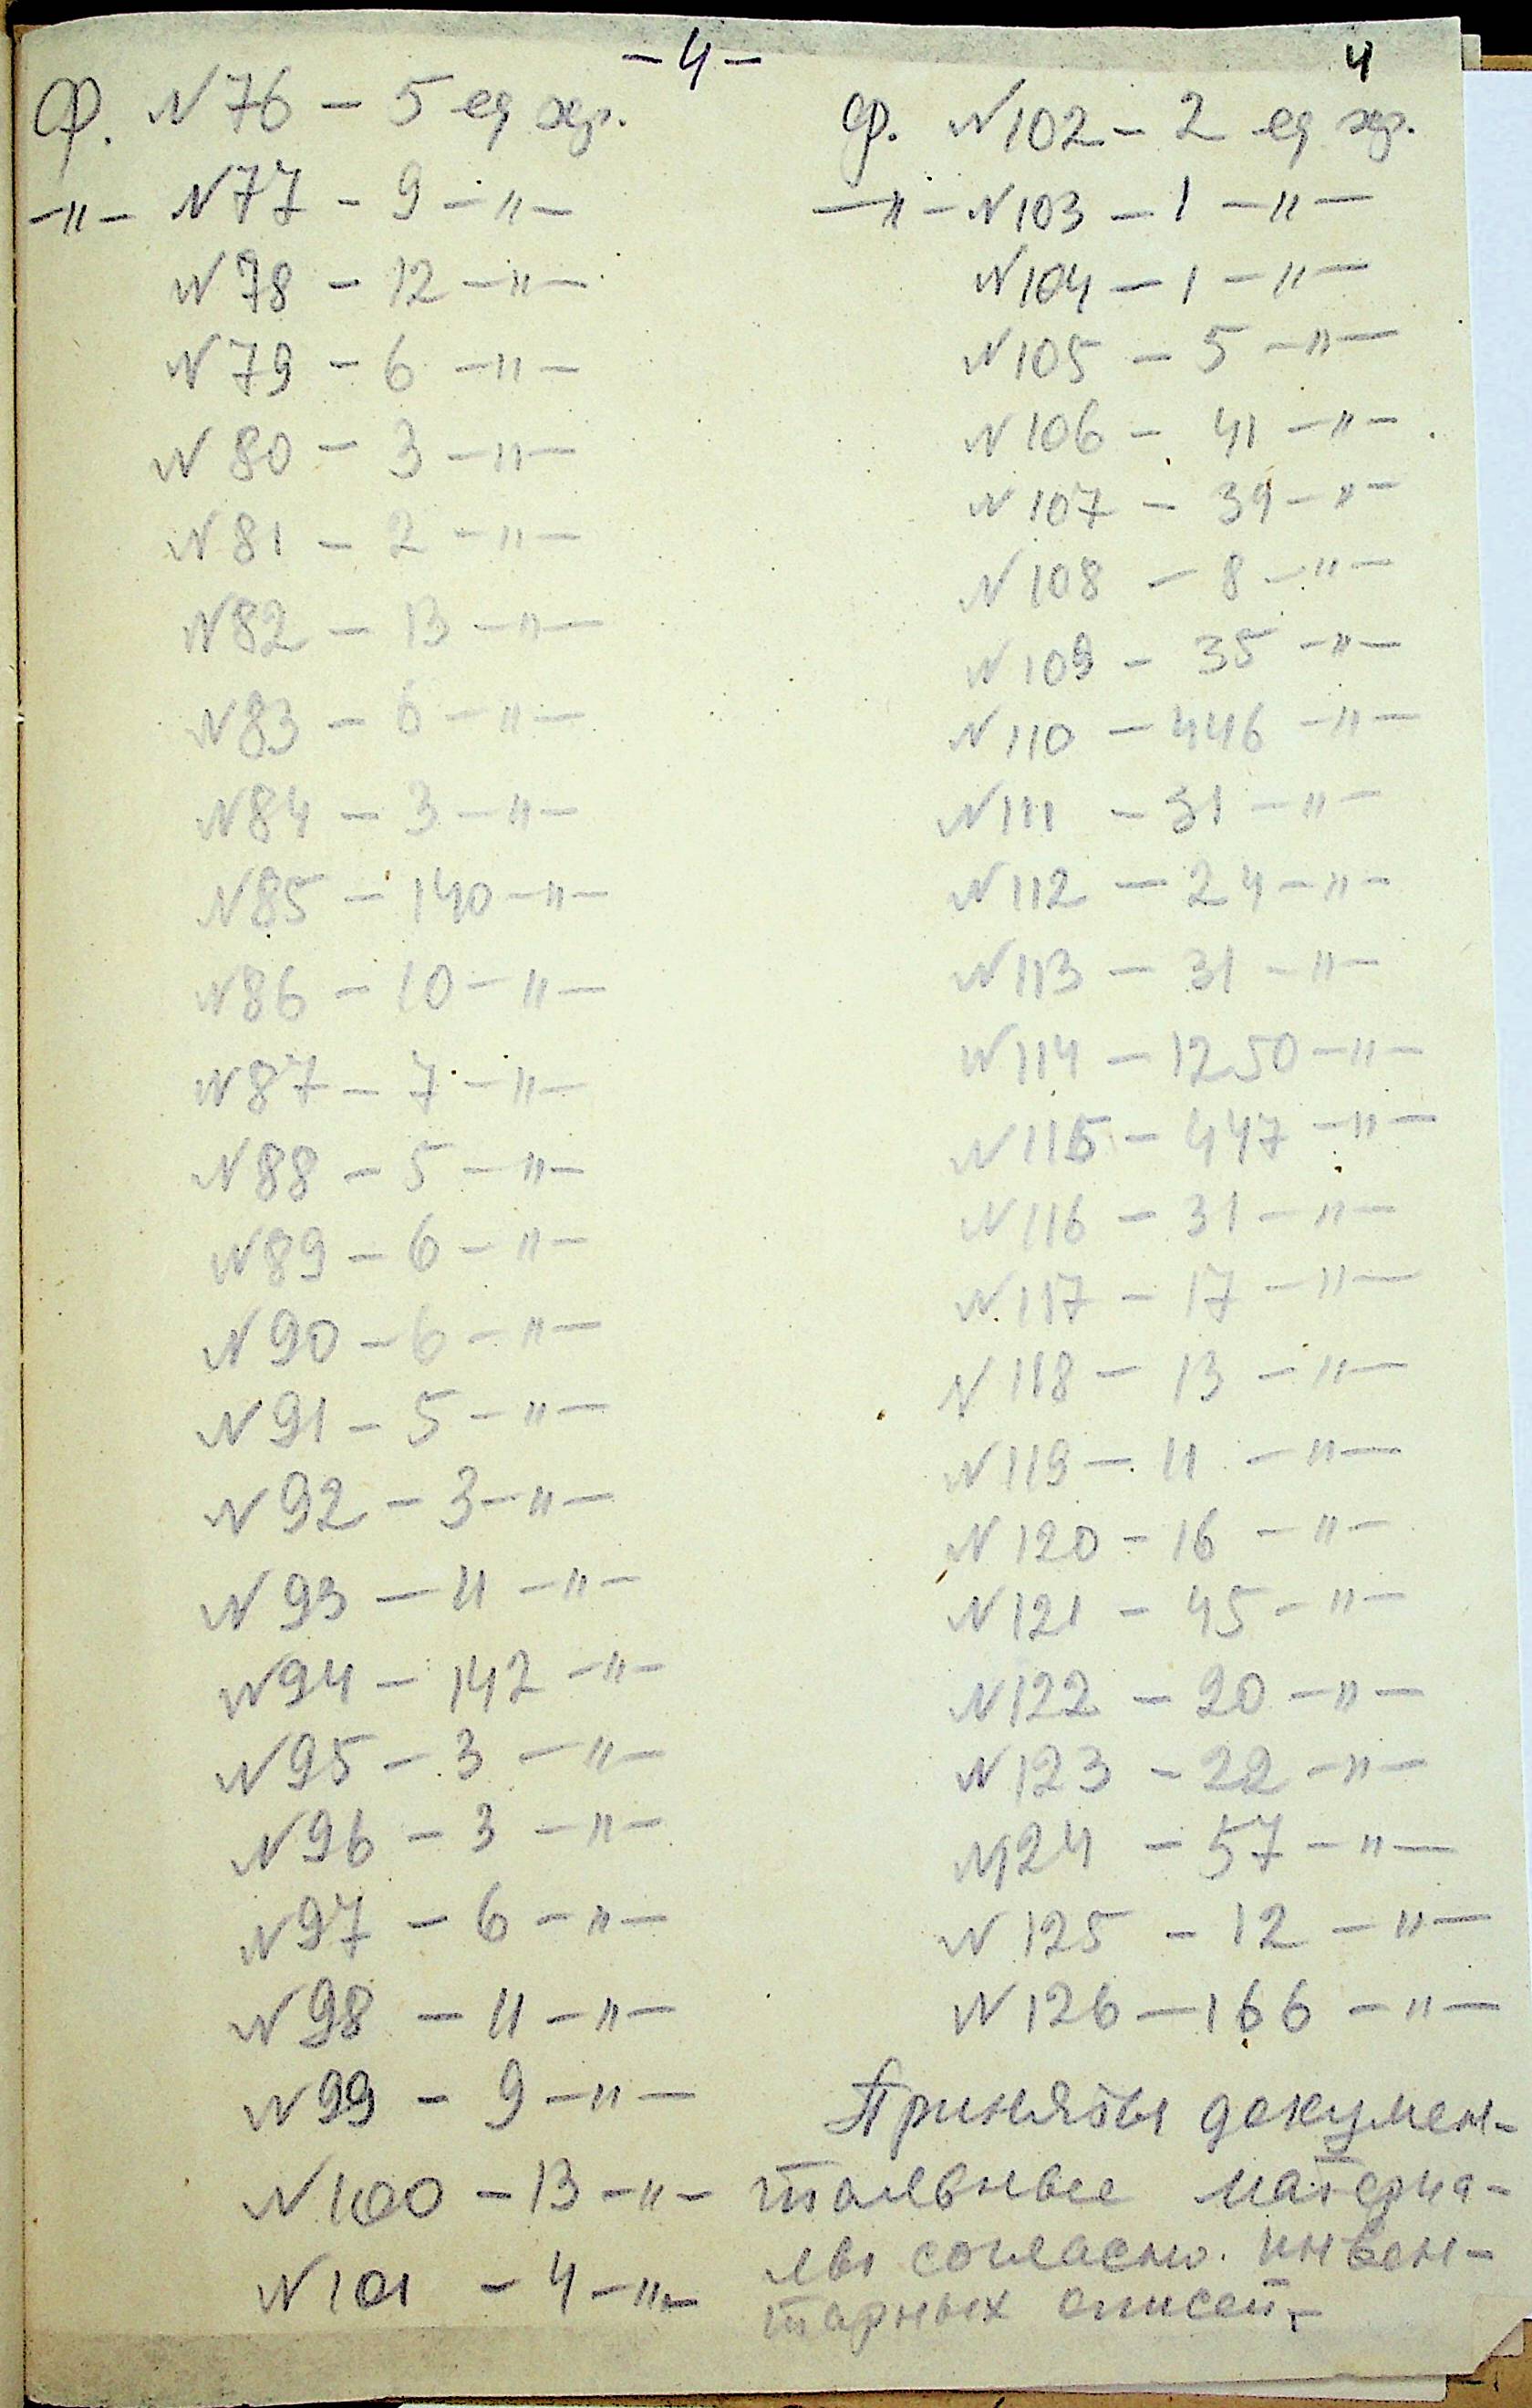 -4-
4
Ф. N76 - 5 ед хр.
-"- N77 - 9 -"-
N78 - 12 -"-
N79 - 6 -"-
N80 - 3 -"-
N81 - 2 -"-
N82 - 13 -"-
N83 - 6 -"-
N84 - 3 -"-
N85 - 140 -"-
N86 - 10 -"-
N87 - 7 -"-
N88 - 5 -"-
N89 - 6 -"-
N90 - 6 -"-
N91 - 5 -"-
N92 - 3 -"-
N93 - 11 -"-
N94 - 142 -"-
N95 - 3 -"-
N96 - 3 -"-
N97 - 6 -"-
N98 - 11 -"-
N99 - 9 -"-
N100 - 13 -"-
N101 - 4 -"-
Ф. N102 - 2 ед хр.
-"- N103 - 1 -"-
N104 - 1 -"-
N105 - 5 -"-
N106 - 41 -"-
N107 - 39 -"-
N108 - 8 -"-
N109 - 35 -"-
N110 - 446 -"-
N111 - 31 -"-
N112 - 24 -"-
N113 - 31 -"-
N114 - 1250 -"-
N115 - 447 -"-
N116 - 31 -"-
N117 - 17 -"-
N118 - 13 -"-
N119 - 11 -"-
N120 - 16 -"-
N121 - 45 -"-
N122 - 20 -"-
N123 - 22 -"-
N124 - 57 -"-
N125 - 12 -"-
N126 - 166 -"-
Приняты докумен-
тальные материа-
лы согласно инвен-
тарных описей.